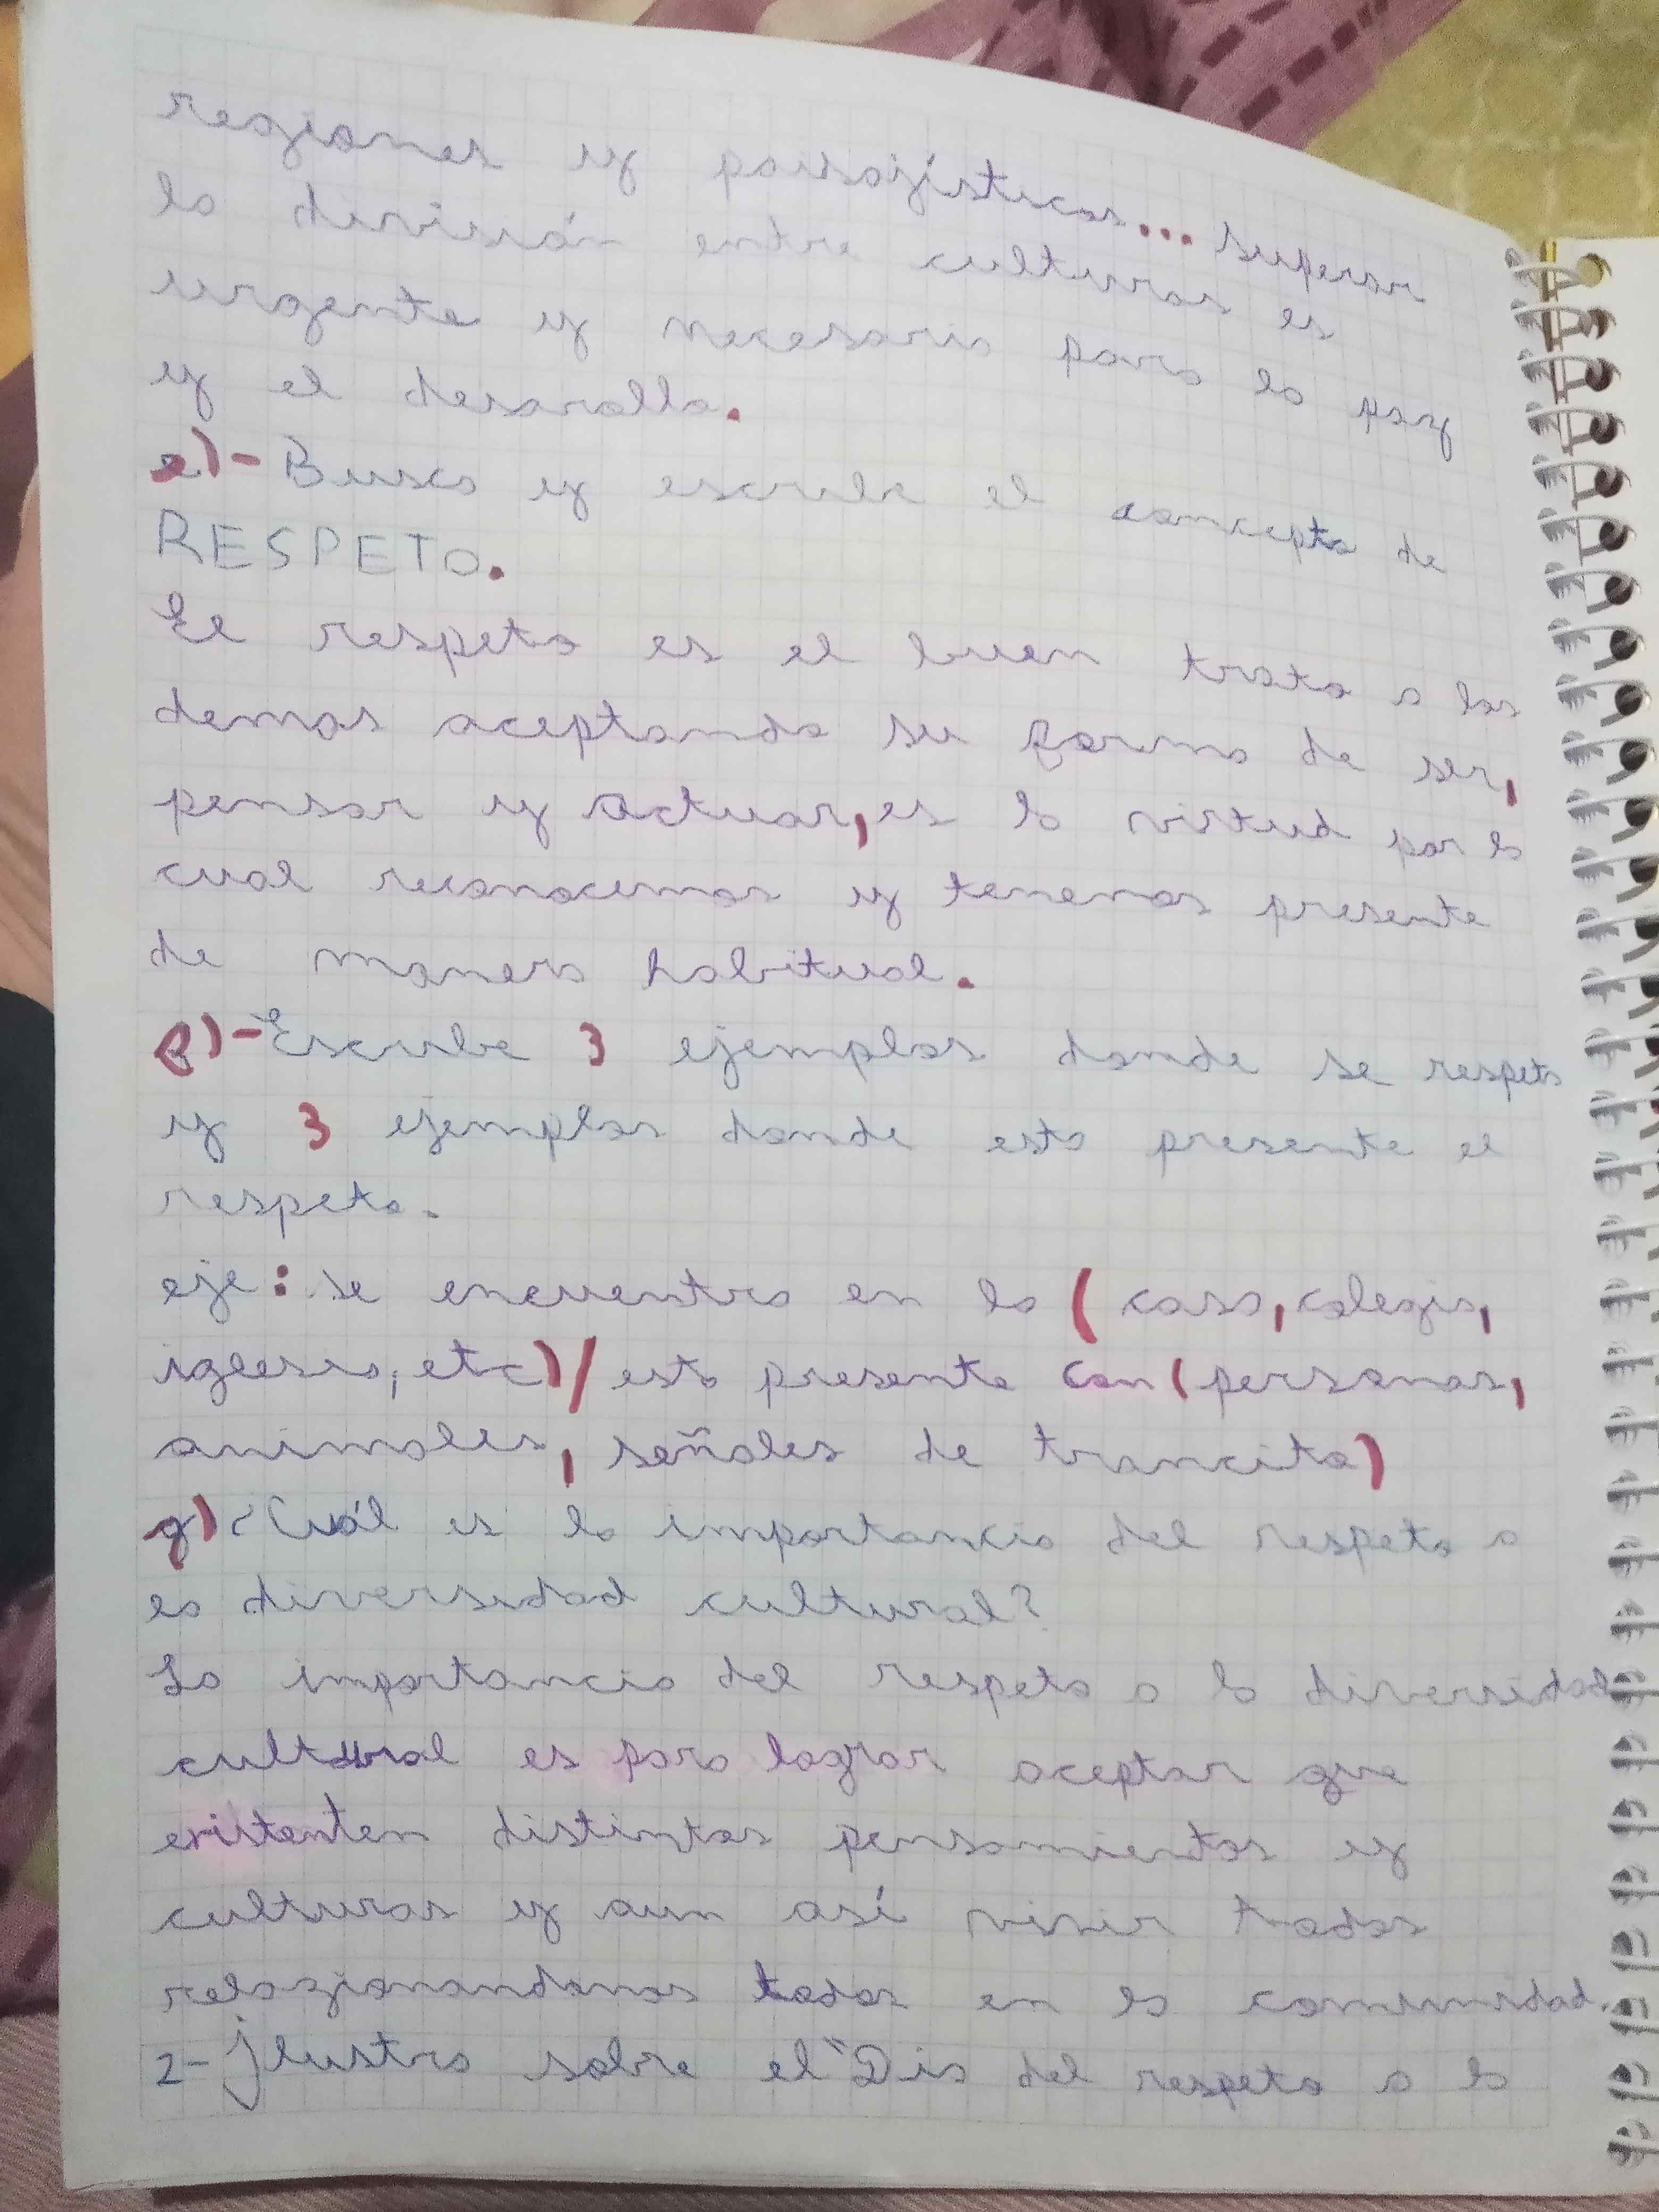 regiones y paisajísticas... Superar
la división entre culturas es
urgente y necesario para la paz
y el desarollo.
e)- Busca y escribe el concepto de
RESPETO.
El respeto es el buen trato a los
demas aceptando su forma de ser,
pensar y actuar, es la virtud por la
cual reconocemos y tenemos presente
de manera habitual.
f)- Escribe 3 ejemplos donde se respeta
y 3 ejemplos donde esta presente el
respeto.
eje: se encuentra en la (casa, colegio,
iglesia, etc)/ esta presente con (personas,
animales, señales de trancito)
g) ¿Cuál es la importancia del respeto a
la diversidad cultural?
La importancia del respeto a la diversidad
cultural es para lograr aceptar que
existenten distintos pensamientos y
culturas y aun así vivir todos
relazionandonos todos en la comunidad.
2- Ilustra sobre el "Dia del respeto a la